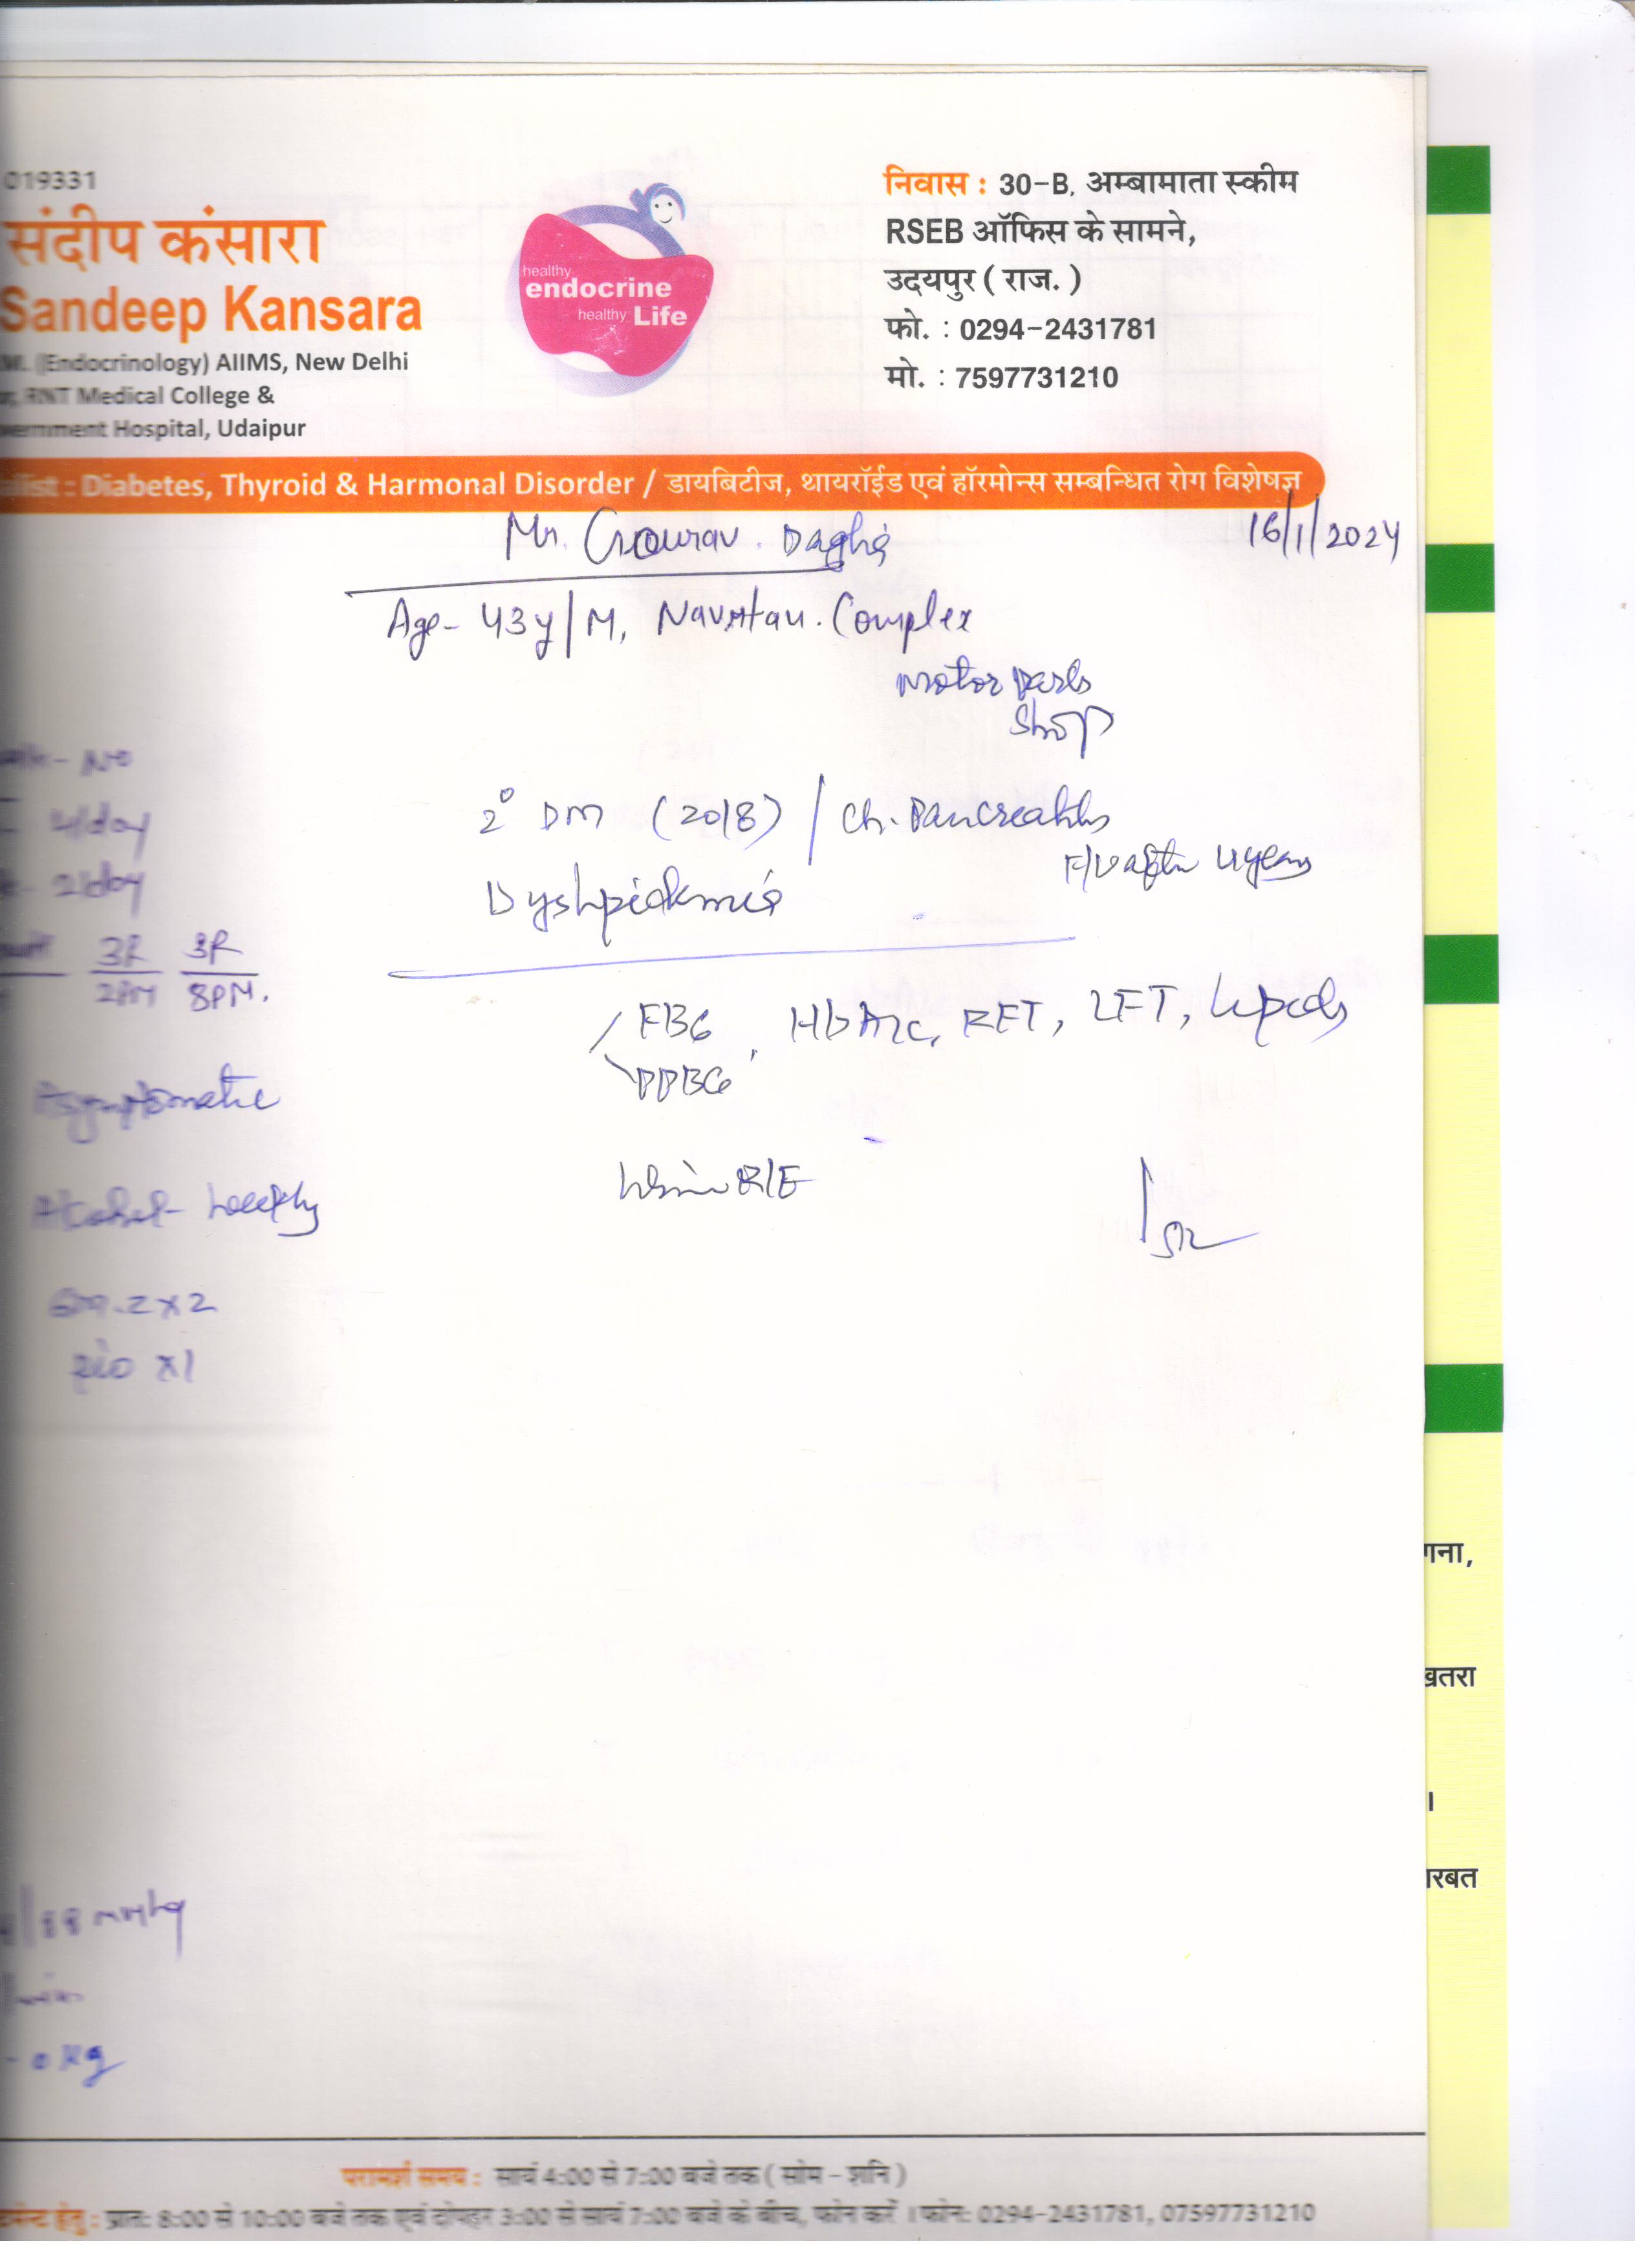 019331
संदीप कंसारा
Sandeep Kansara
(Endocrinology) AIIMS, New Delhi
RNT Medical College &
Hospital, Udaipur
healthy
endocrine
healthy Life
निवास : 30-B, अम्बामाता स्कीम
RSEB ऑफिस के सामने,
उदयपुर ( राज. )
फो. : 0294-2431781
मो. : 7597731210
: Diabetes, Thyroid & Harmonal Disorder / डायबिटीज, थायरॉईड एवं हॉरमोन्स सम्बन्धित रोग विशेषज्ञ
Mr. Gourav
16/1/2024
Age- 43y/M, Complex
Motor Parts
Shop
- No
- 4/day
- 2/day
2° DM (2018) / Ch. Pancreatitis
F/U after 4 years
Dyslipidemia
3R 3R
2PM 8PM.
FBG, HbA1c, RFT, LFT, Lipids
PPBG
Asymptomatic
Urine R/E
Alcohol- weekly
2x2
x1
/88 mmHg
kg
गना,
खतरा
।
रबत
परामर्श समय : सायं 4:00 से 7:00 बजे तक ( सोम - शनि )
हेतु : प्रात: 8:00 से 10:00 बजे तक एवं दोपहर 3:00 से सायं 7:00 बजे के बीच, फोन करें । फोन: 0294-2431781, 07597731210